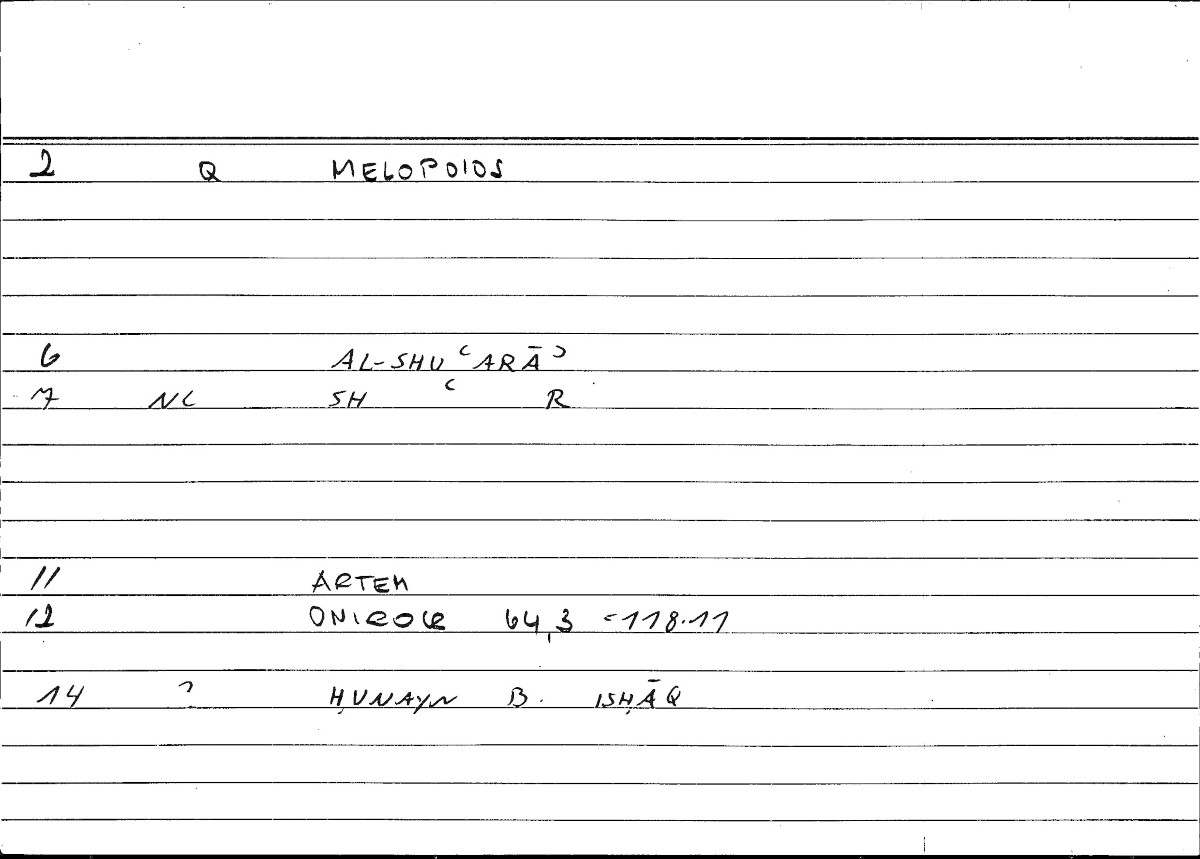 2 Q MELOPOIOS
6 AL-SHUʿARĀʾ
7 NC SH ʿ R
11 ARTEM
12 ONIROCR 64,3 =118.11
14 ? ḤUNAYN B. ISḤĀQ